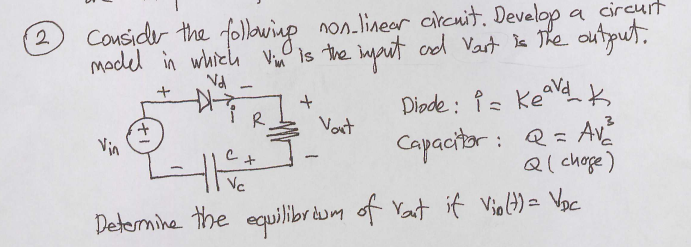 (2) Consider the following non-linear circuit. Develop a circuit
model in which Vin is the input and Vout is the output.
+ Vd -
i
+
R
Vout
-
Vin
+
-
- C +
Vc
Diode: i = Ke^aVd - K
Capacitor: Q = AVc^3
Q (charge)
Determine the equilibrium of Vout if Vin(t) = VDC